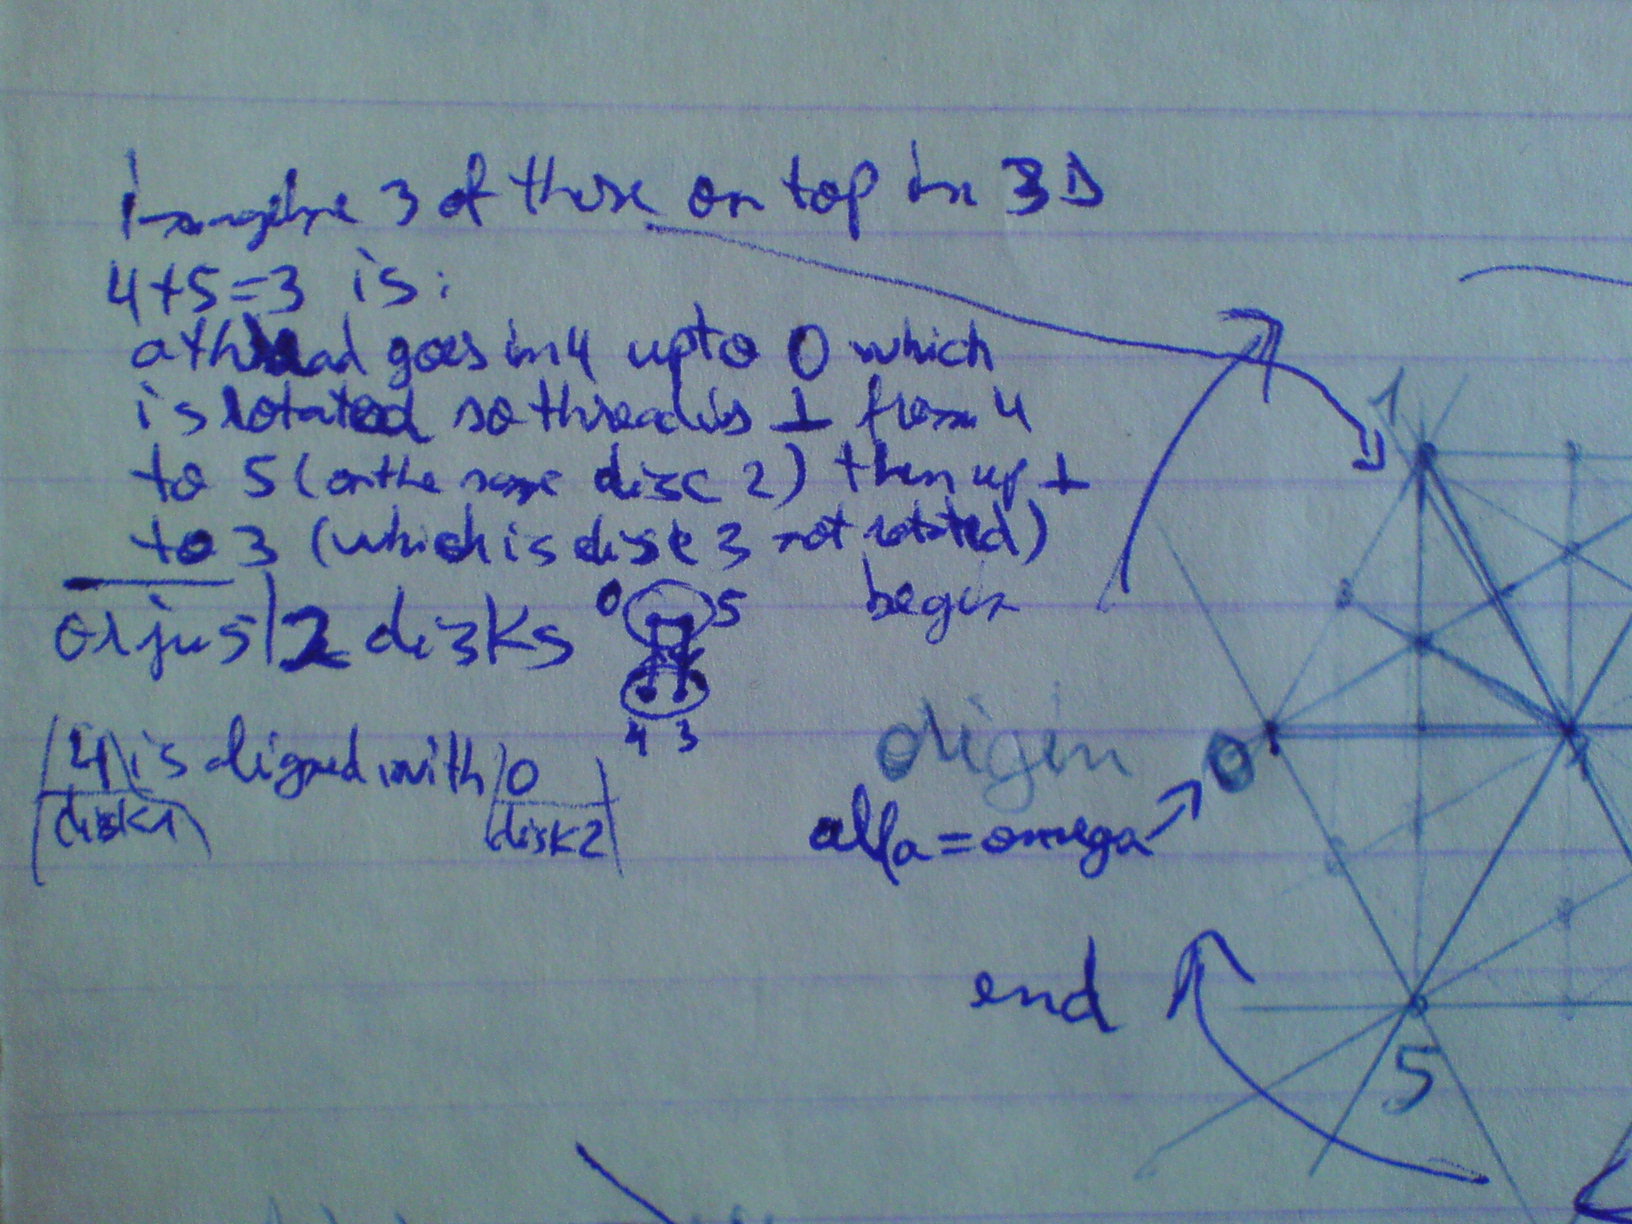 imagine 3 of these on top in 3D
4+5=3 is:
a thread goes in 4 up to 0 which
is rotated so thread is ⊥ from 4
to 5 (on the same disc 2) then up ⊥
to 3 (which is disk 3 not rotated)
or just 2 disks
0 5
4 3
begin
4 is aligned with 0
disk1 disk2
origin
alfa = omega
0
1
end
5